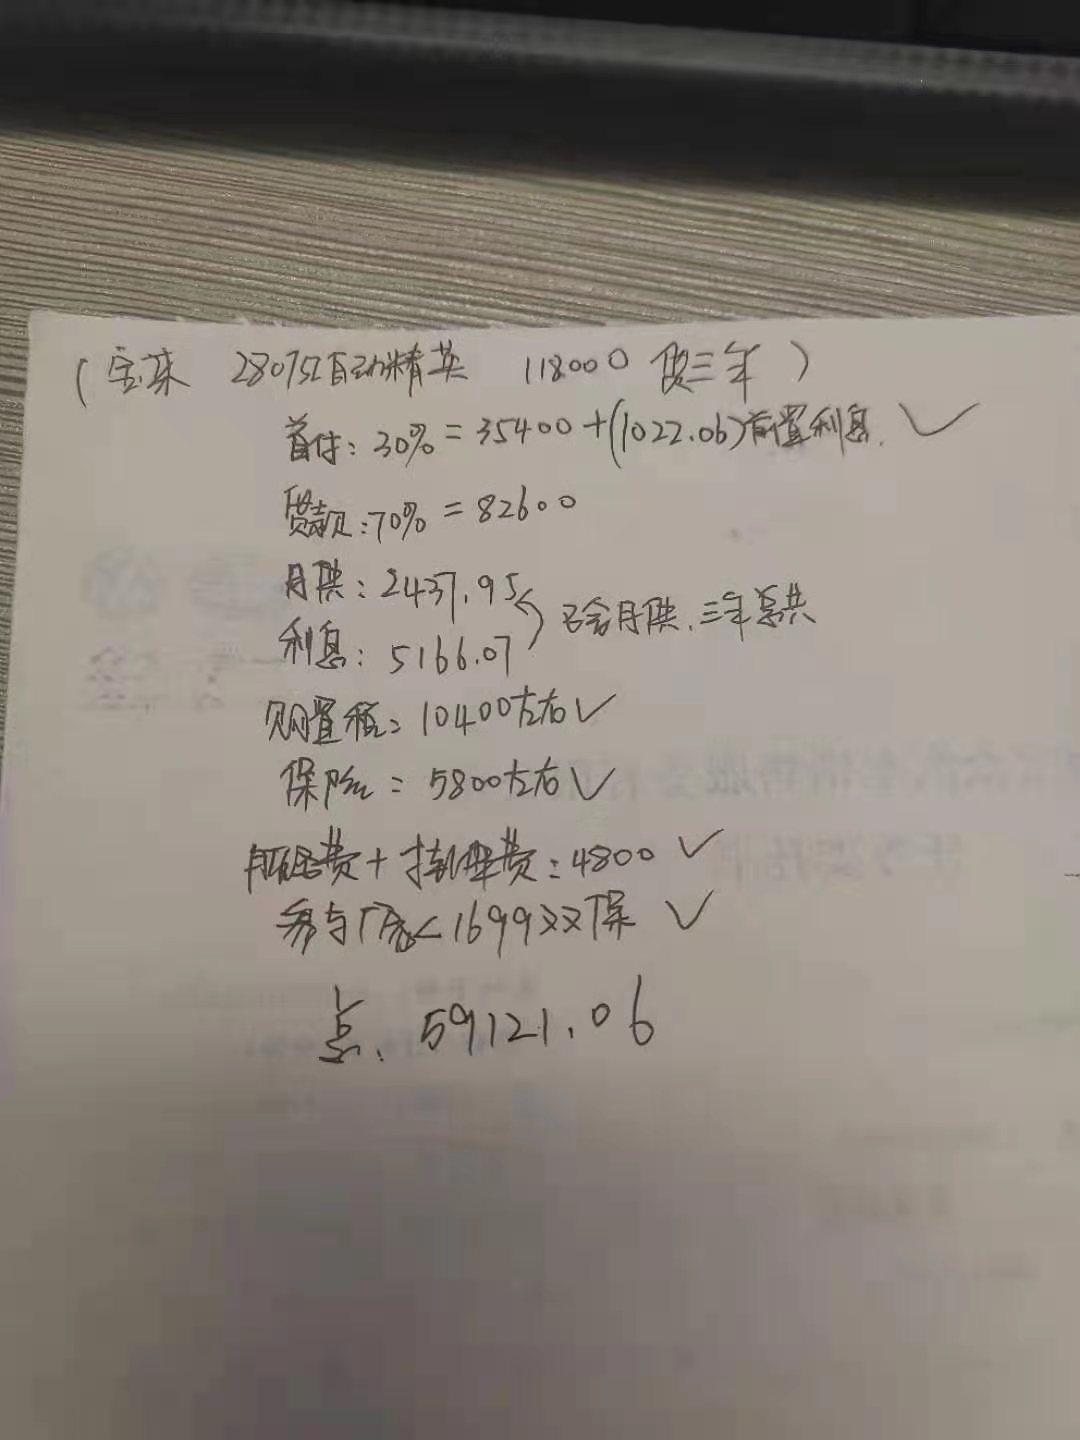 (宝来 280TSI自动精英 118000 贷三年)
首付:30%=35400+(1022.06)前置利息.
贷款:70%=82600
月供:2437.95
利息:5166.07 已含月供.三年总共
购置税:10400左右
保险:5800左右
服务费+挂牌费:4800
参与厂家<1699双保
总.59121.06